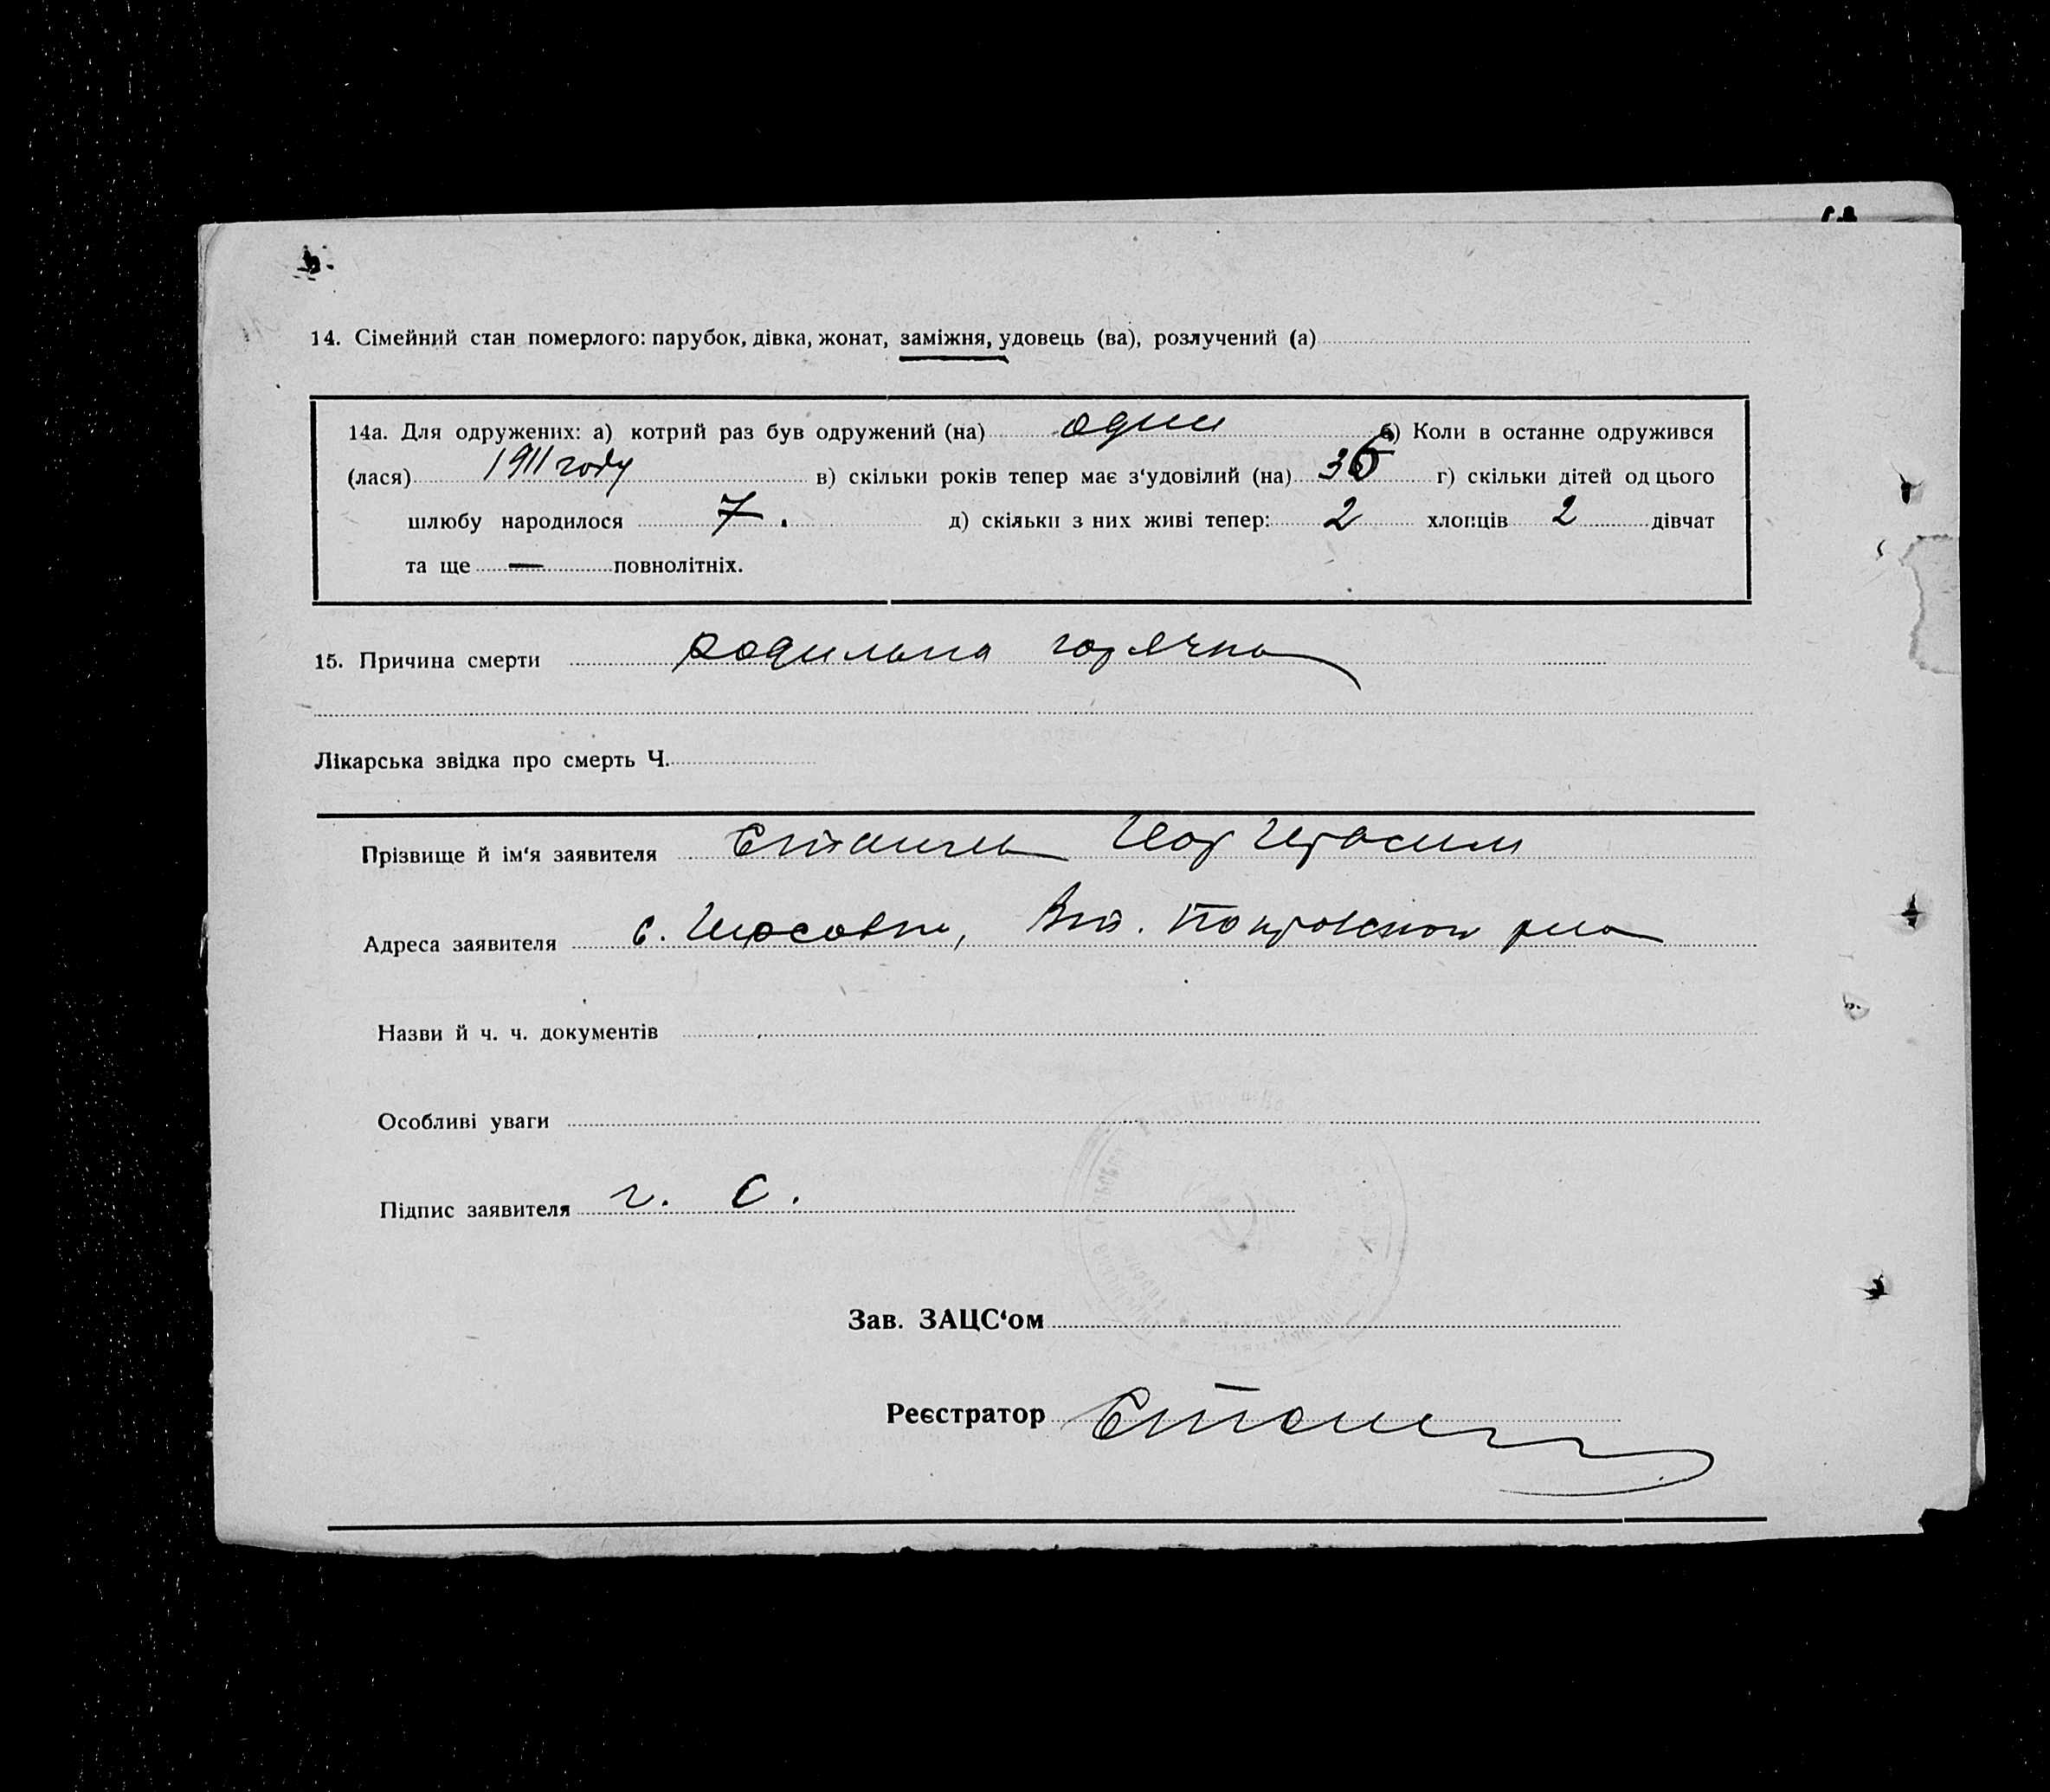 14. Сімейний стан померлого: парубок, дівка, жонат, заміжня, удовець (ва), розлучений (а)
14а. Для одружених: а) котрий раз був одружений (на) один б) Коли в останне одружився
(лася) 1911 году в) скільки років тепер має з‘удовілий (на) 36 г) скільки дітей од цього
шлюбу народилося 7. д) скільки з них живі тепер: 2 хлопців 2 дівчат
та ще — повнолітніх.
15. Причина смерти родильна горячка
Лікарська звідка про смерть Ч.
Прізвище й ім‘я заявителя
Адреса заявителя с.
Назви й ч. ч. документів
Особливі уваги
Підпис заявителя г. С.
Зав. ЗАЦС‘ом
Реєстратор